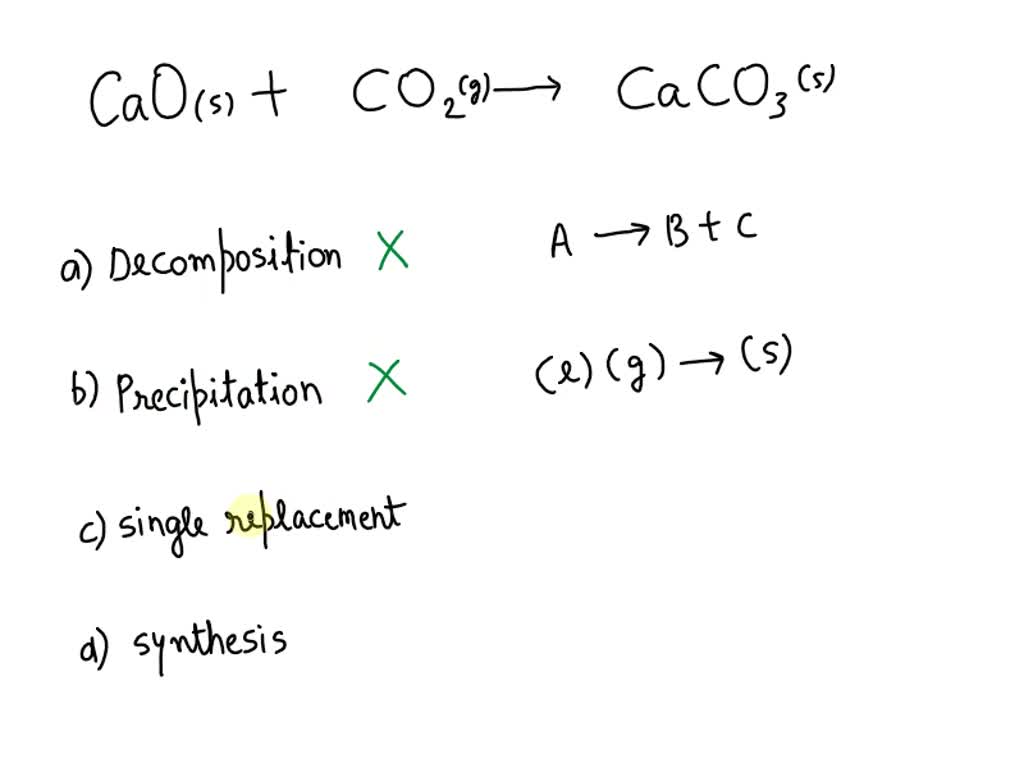 CaO(s) + CO₂(g) → CaCO₃(s)
a) Decomposition X A → B + C
b) Precipitation X (l) (g) → (s)
c) single replacement
d) synthesis